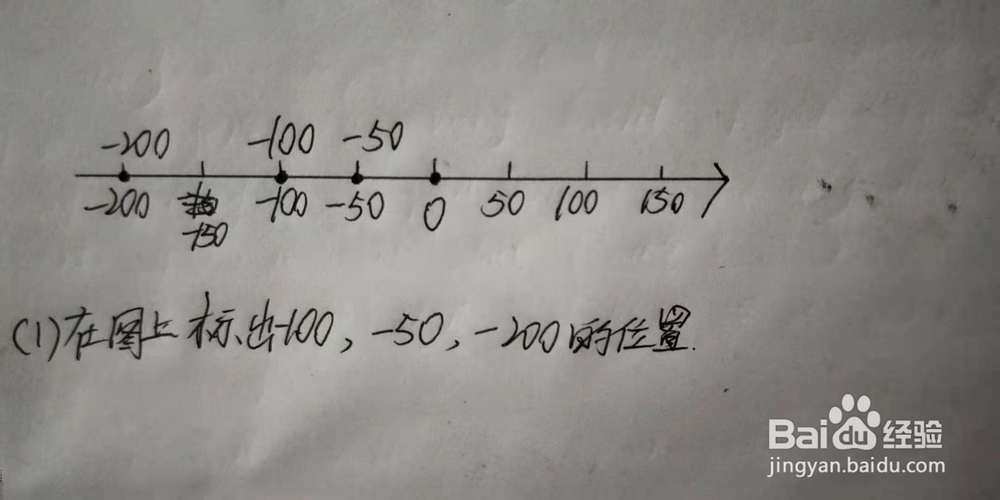 -200 -100 -50
-200 -100 -50 0 50 100 150
-150
(1)在图上标出-100,-50,-200的位置.
Baidu经验
jingyan.baidu.com